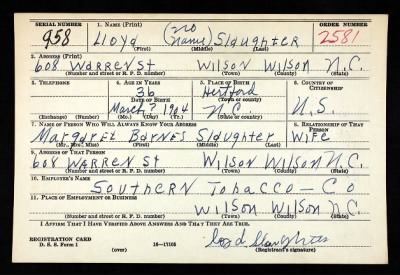 SERIAL NUMBER
1. NAME (Print)
ORDER NUMBER
958
Lloyd (no name) Slaughter
2581
(First) (Middle) (Last)
2. ADDRESS (Print)
608 Warren St Wilson Wilson N.C.
(Number and street or R. F. D. number) (Town) (County) (State)
3. TELEPHONE
4. AGE IN YEARS
5. PLACE OF BIRTH
6. COUNTRY OF CITIZENSHIP
36
Hertford
DATE OF BIRTH
(Town or county)
March 7 1904
N.C.
U.S.
(Exchange) (Number)
(Mo.) (Day) (Yr.)
(State or country)
7. NAME OF PERSON WHO WILL ALWAYS KNOW YOUR ADDRESS
8. RELATIONSHIP OF THAT PERSON
Margaret Barnes Slaughter
Wife
(Mr., Mrs., Miss) (First) (Middle) (Last)
9. ADDRESS OF THAT PERSON
608 Warren St Wilson Wilson N.C.
(Number and street or R. F. D. number) (Town) (County) (State)
10. EMPLOYER'S NAME
Southern Tobacco - Co
11. PLACE OF EMPLOYMENT OR BUSINESS
Wilson Wilson N.C.
(Number and street or R. F. D. number) (Town) (County) (State)
I AFFIRM THAT I HAVE VERIFIED ABOVE ANSWERS AND THAT THEY ARE TRUE.
REGISTRATION CARD
D. S. S. Form 1
(over)
16-17105
Loyd Slaughter
(Registrant's signature)